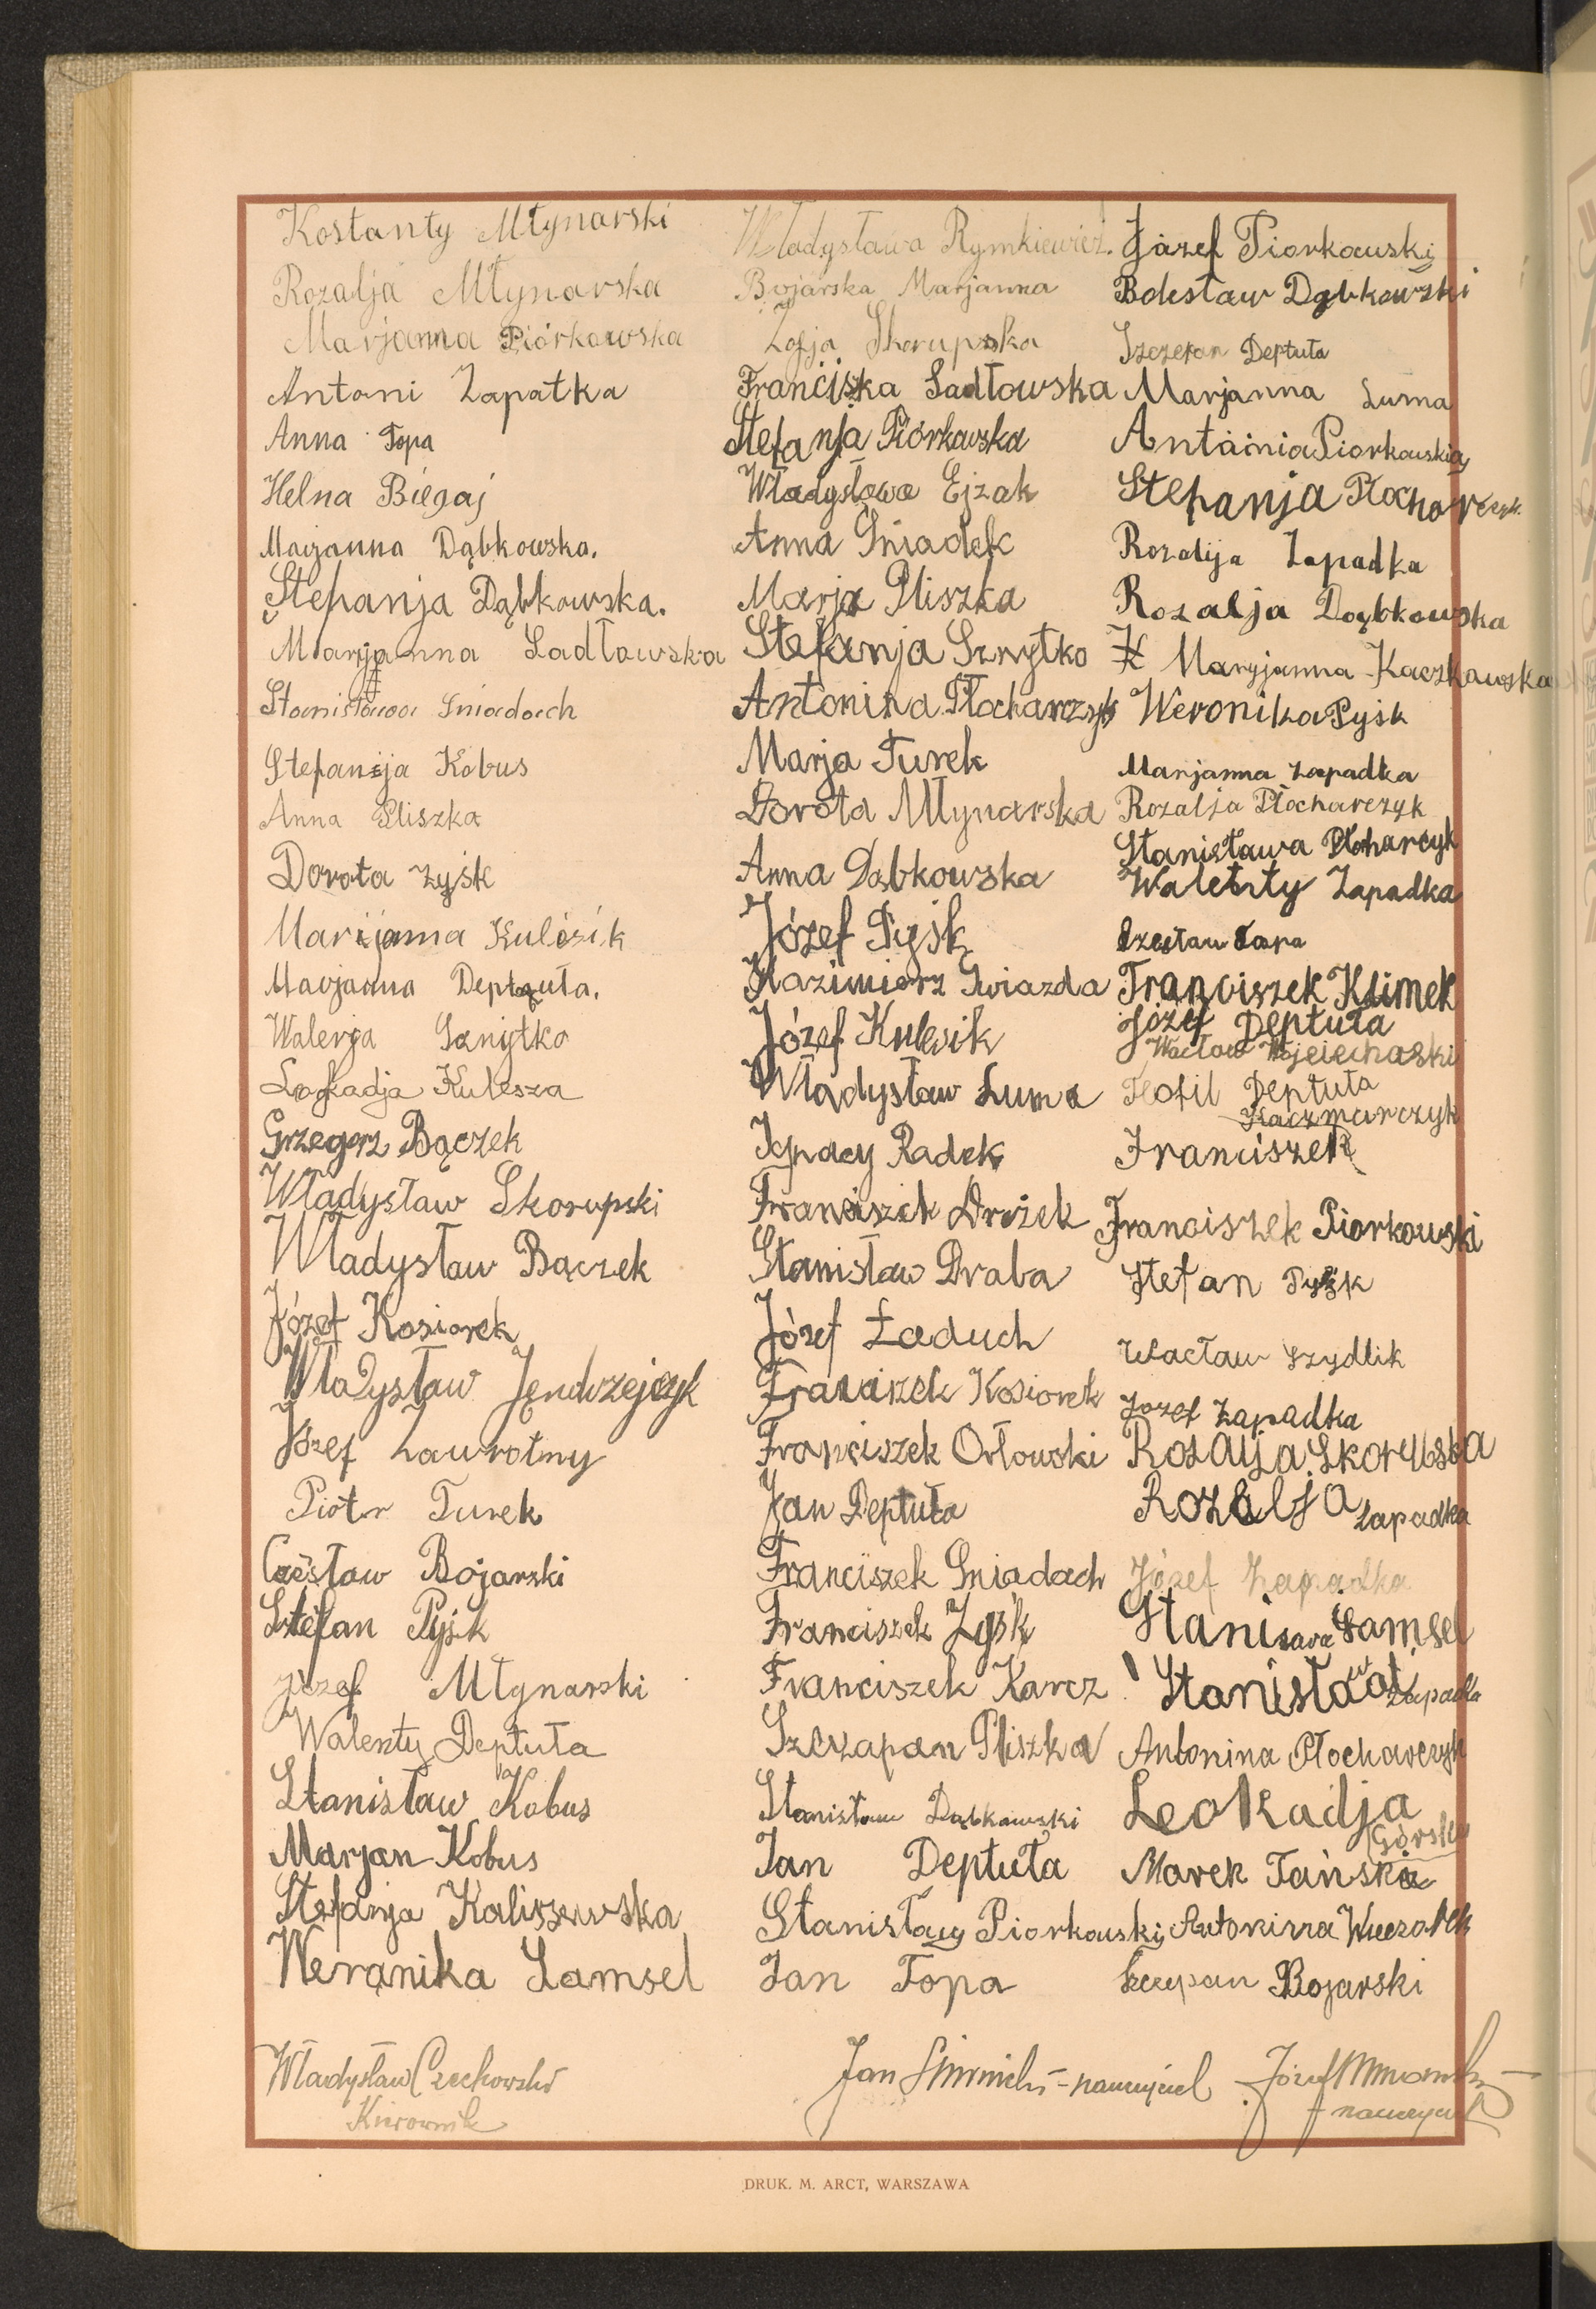 Kostanty Młynarski
Rozalja Młynarska
Marjanna Piórkowska
Antoni Zapatka
Anna Topa
Helna Biegaj
Marjanna Dąbkowska.
Stefanja Dąbkowska.
Marjjanna Sadłowska
Stanisława Śniadach
Stefanija Kobus
Anna Pliszka
Dorota Zyśk
Marijanna Kulesik
Marjanna Deptuła.
Walerja Sznytko
Leokadja Kulesza
Grzegorz Bączek
Władysław Skorupski
Władysław Bączek
Józef Kosiorek
Władysław Jendrzejczyk
Józef Zawrotny
Piotr Turek
Czesław Bojarski
Stefan Pyśk
Józef Młynarski
Walenty Deptuła
Stanisław Kobus
Marjan Kobus
Stefanja Kaliszewska
Weranika Samsel
Władysława Rymkiewicz.
Bojarska Marjanna
Zofja Skorupska
Franciszka Sadłowska
Stefanja Piórkowska
Władysława Ejzak
Anna Śniadek
Marja Pliszka
Stefanja Sznytko
Antonina Płocharczyk
Marja Turek
Dorota Młynarska
Anna Dąbkowska
Józef Pyśk
Kazimierz Gwiazda
Józef Kulesik
Władysław Łuma
Ignacy Radek
Franciszek Drożek
Stanisław Draba
Józef Zaduch
Franciszek Kosiorek
Franciszek Orłowski
Jan Deptuła
Franciszek Śniadach
Franciszek Zyśk
Franciszek Karcz
Szczapan Pliszka
Stanisław Dąbkowski
Jan Deptuła
Stanisławy Piorkowski
Jan Topa
Józef Piorkowski
Bolesław Dąbkowski
Szczepan Deptuła
Marjanna Łuma
Antainia Piorkowska
Stefanja Płocharczyk
Rozalija Zapadka
Rozalja Dąbkowska
Maryjanna Kaczkowska
Weronika Pyśk
Marjanna Zapadka
Rozalja Płocharczyk
Stanisława Płoharcyk
Walenty Zapadka
Czesław Topa
Franciszek Klimek
Józef Deptuła
Wacław Wojciechoski
Teofil Deptuła
Kaczmarczyk
Franciszek
Franciszek Piorkowski
Stefan Pyśk
Wacław Szydlik
Józef Zapadka
Rozalja Skorupska
Rozalja Zapadka
Józef Zapadka
Stanisława Samsel
Stanisława Zapadka
Antonina Płocharczyk
Leokadja
Górska
Marek Tański
Antonina Wieczorek
Szczepan Bojarski
Władysław Czechowski
Kierownik
Jan - nauczyciel
Józef
- nauczyciel
DRUK. M. ARCT, WARSZAWA